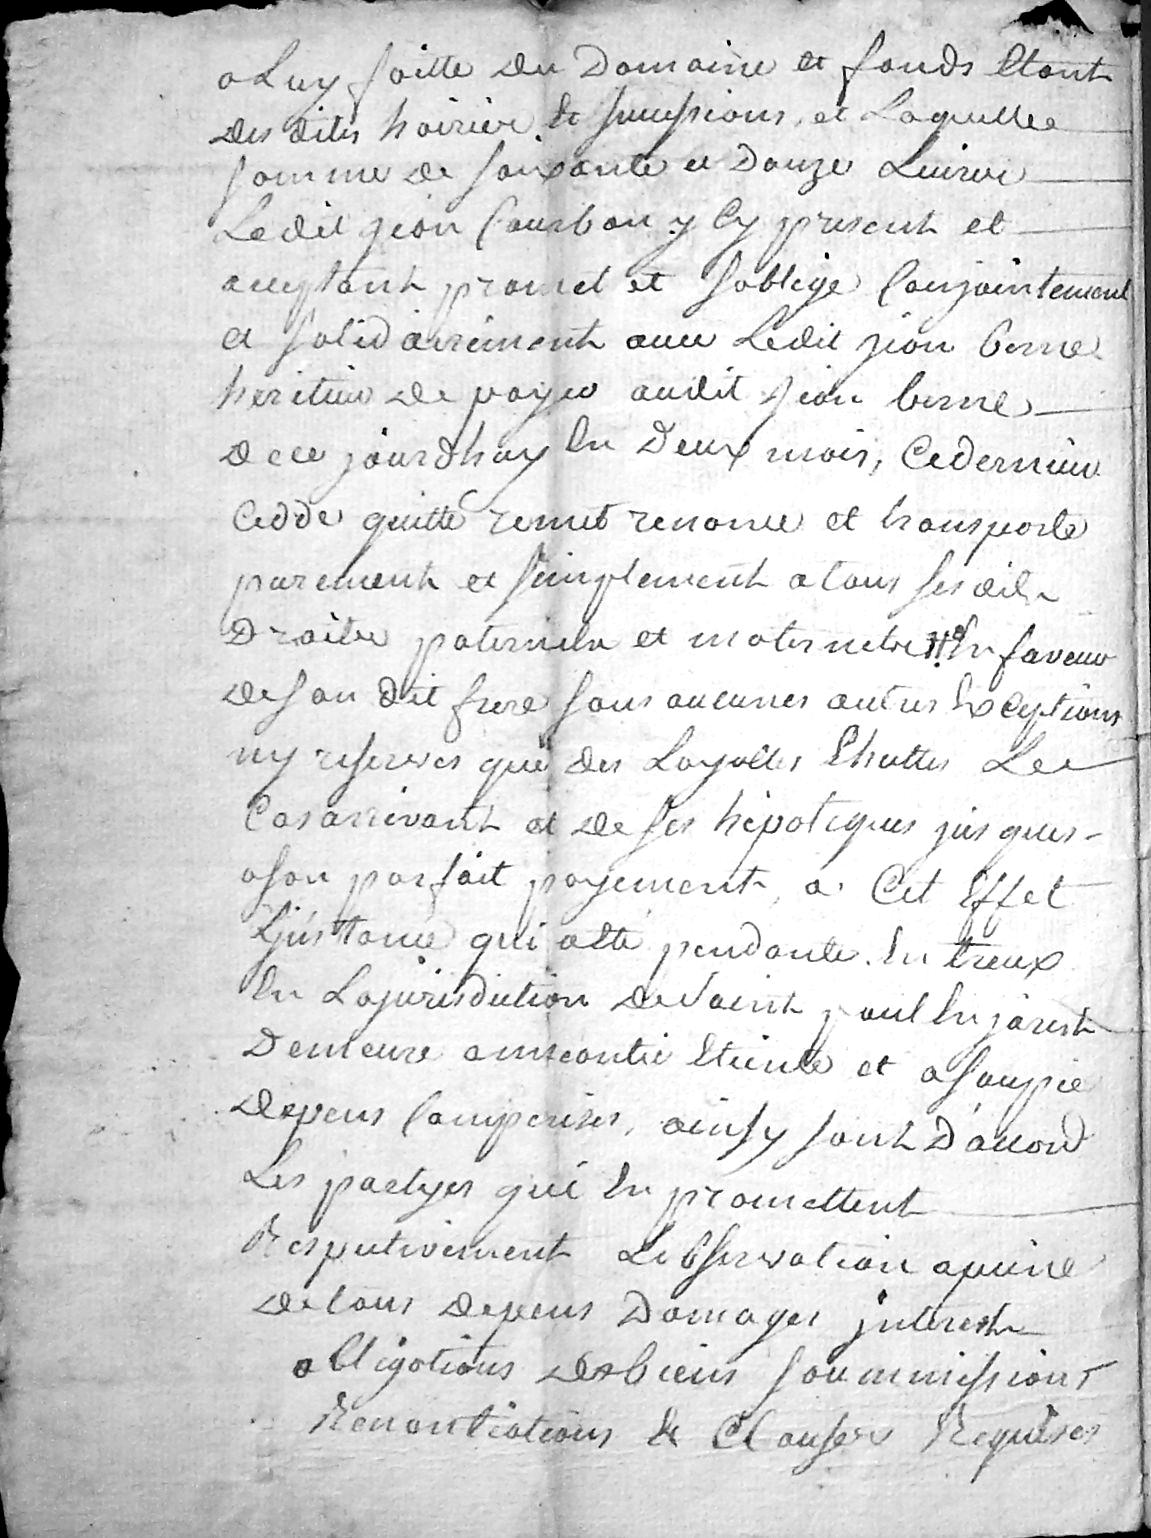 a Luy faitte du Domaine et fonds Etant
des dites hoirie & successions, et Laquelle
somme de soixante et Douze Livres
Ledit jean Courbon y Cy present et
acceptant promet et soblige Conjointement
et solidairement avec Ledit jean berne
heritier de payer audit jean berne
de ce jourdhuy En Deux mois, Cedernier
Cedde quitte remet renonce et transporte
purement et simplement a tous ses dits
Droits paternels et maternels En faveur
de son dit frere sans aucunes autres Exceptions
ny reserves que des Loyalles Ehuttes Le
Cas arrivant et de ses hipoteques jusques
a son parfait payement, a Cet Effet
Ljnstance qui a Eté pendante Entreux
En La jurisdiction de Saint paul En jarest
Demeure aneantie Eteinte et asoupie
depens Comprises, ainsy sont D'accord
Les partyes qui En promettent
Respectivement Lobservation a peine
de tous depens Domages jnterests
obligations des biens soummissions
Renontiations & Clauses Requises